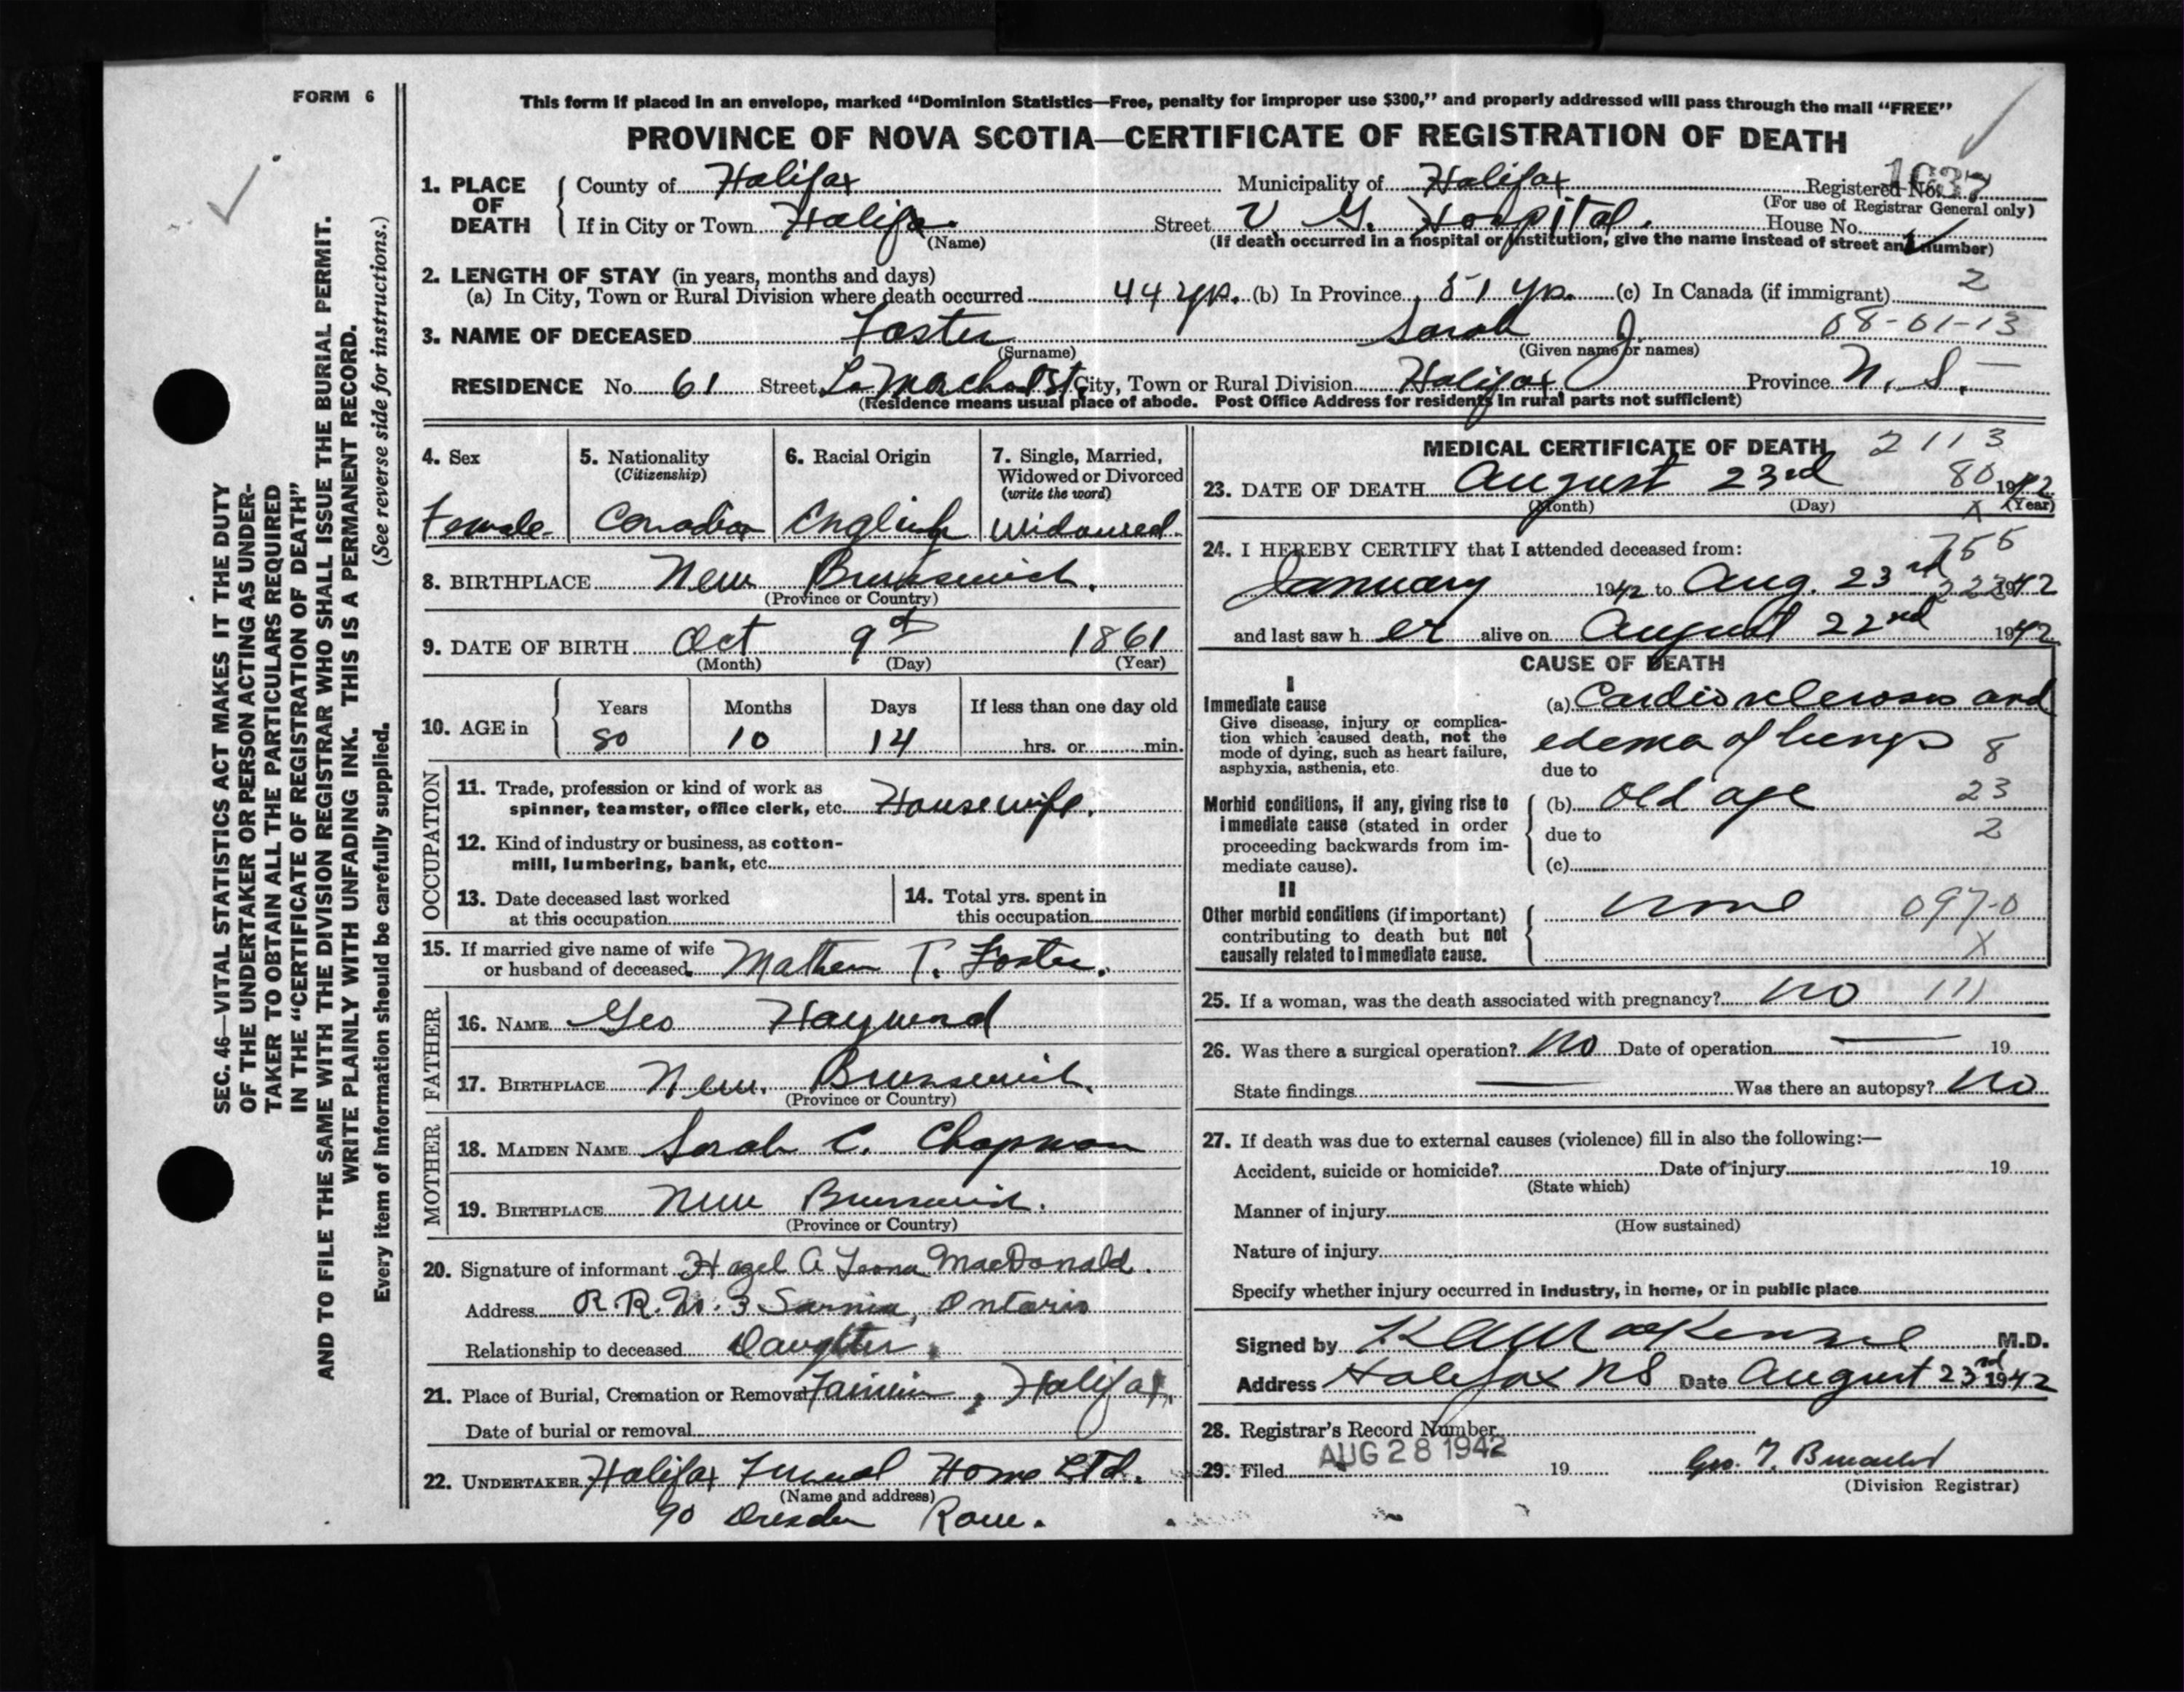 FORM 6
This form if placed in an envelope, marked “Dominion Statistics—Free, penalty for improper use $300,” and properly addressed will pass through the mail “FREE”
PROVINCE OF NOVA SCOTIA—CERTIFICATE OF REGISTRATION OF DEATH
1. PLACE OF DEATH { County of Halifax Municipality of Halifax Registered No. 1637
(For use of Registrar General only)
If in City or Town Halifax Street V. G. Hospital. House No.
(Name) (If death occurred in a hospital or institution, give the name instead of street and number)
2. LENGTH OF STAY (in years, months and days) 2
(a) In City, Town or Rural Division where death occurred 44 yrs. (b) In Province 51 yrs. (c) In Canada (if immigrant)
3. NAME OF DECEASED Foster Sarah J. 08-01-13
(Surname) (Given name or names)
RESIDENCE No. 61 Street La Marchant St. City, Town or Rural Division Halifax Province N. S.
(Residence means usual place of abode. Post Office Address for residents in rural parts not sufficient)
4. Sex 5. Nationality (Citizenship) 6. Racial Origin 7. Single, Married, Widowed or Divorced (write the word)
Female Canadian English Widowed.
8. BIRTHPLACE New Brunswick.
(Province or Country)
9. DATE OF BIRTH Oct 9th 1861
(Month) (Day) (Year)
10. AGE in { Years Months Days If less than one day old
80 10 14 hrs. or min.
OCCUPATION
11. Trade, profession or kind of work as
spinner, teamster, office clerk, etc. Housewife.
12. Kind of industry or business, as cotton-
mill, lumbering, bank, etc.
13. Date deceased last worked at this occupation
14. Total yrs. spent in this occupation
15. If married give name of wife
or husband of deceased. Mathew T. Foster.
FATHER
16. NAME Geo Hayward
17. BIRTHPLACE New. Brunswick.
(Province or Country)
MOTHER
18. MAIDEN NAME Sarah C. Chapman
19. BIRTHPLACE New Brunswick.
(Province or Country)
20. Signature of informant Hazel A Leona MacDonald.
Address R R. No. 3 Sarnia, Ontario
Relationship to deceased Daughter.
21. Place of Burial, Cremation or Removal Fairview, Halifax.
Date of burial or removal
22. UNDERTAKER Halifax Funeral Home Ltd.
(Name and address)
90 Dresden Row.
MEDICAL CERTIFICATE OF DEATH 2113
23. DATE OF DEATH August 23rd 80 1942
(Month) (Day) X (Year)
24. I HEREBY CERTIFY that I attended deceased from:
January 1942 to Aug. 23rd 1942
and last saw her alive on August 22nd 1942
CAUSE OF DEATH
I
Immediate cause (a) Cardiosclerosis and
Give disease, injury or complica-
tion which caused death, not the edema of lungs 8
mode of dying, such as heart failure,
asphyxia, asthenia, etc. due to
Morbid conditions, if any, giving rise to (b) Old age 23
immediate cause (stated in order due to 2
proceeding backwards from im-
mediate cause). (c)
II
Other morbid conditions (if important) none 097-0
contributing to death but not
causally related to immediate cause. X
25. If a woman, was the death associated with pregnancy? No 111
26. Was there a surgical operation? No Date of operation — 19
State findings — Was there an autopsy? No
27. If death was due to external causes (violence) fill in also the following:—
Accident, suicide or homicide? Date of injury 19
(State which)
Manner of injury
(How sustained)
Nature of injury
Specify whether injury occurred in industry, in home, or in public place
Signed by K A MacKenzie M.D.
Address Halifax NS Date August 23rd 1942
28. Registrar's Record Number
29. Filed AUG 28 1942 19
(Division Registrar)
SEC. 46—VITAL STATISTICS ACT MAKES IT THE DUTY
OF THE UNDERTAKER OR PERSON ACTING AS UNDER-
TAKER TO OBTAIN ALL THE PARTICULARS REQUIRED
IN THE “CERTIFICATE OF REGISTRATION OF DEATH”
AND TO FILE THE SAME WITH THE DIVISION REGISTRAR WHO SHALL ISSUE THE BURIAL PERMIT.
WRITE PLAINLY WITH UNFADING INK. THIS IS A PERMANENT RECORD.
Every item of information should be carefully supplied. (See reverse side for instructions.)